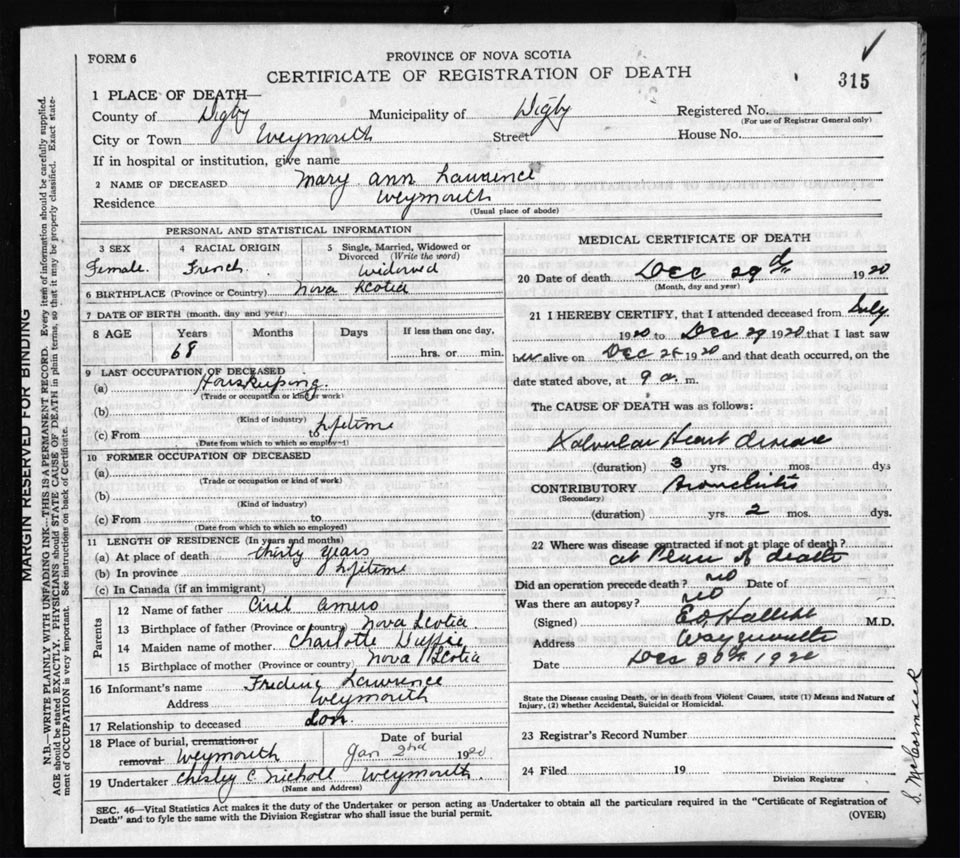 FORM 6
PROVINCE OF NOVA SCOTIA
CERTIFICATE OF REGISTRATION OF DEATH
315
1 PLACE OF DEATH—
County of Digby Municipality of Digby Registered No.
(For use of Registrar General only)
City or Town Weymouth Street House No.
If in hospital or institution, give name
2 NAME OF DECEASED Mary Ann Lawrence
Residence Weymouth
(Usual place of abode)
PERSONAL AND STATISTICAL INFORMATION
3 SEX 4 RACIAL ORIGIN 5 Single, Married, Widowed or
Divorced (Write the word)
Female. French. widowed
6 BIRTHPLACE (Province or Country) Nova Scotia
7 DATE OF BIRTH (month, day and year)
8 AGE Years Months Days If less than one day,
68 hrs. or min.
9 LAST OCCUPATION OF DECEASED
(a) Houskeeping.
(Trade or occupation or kind of work)
(b)
(Kind of industry)
(c) From to lifetime
(Date from which to which so employed)
10 FORMER OCCUPATION OF DECEASED
(a)
(Trade or occupation or kind of work)
(b)
(Kind of industry)
(c) From to
(Date from which to which so employed)
11 LENGTH OF RESIDENCE (In years and months)
(a) At place of death thirty years
(b) In province lifetime
(c) In Canada (if an immigrant)
Parents
12 Name of father Ciril Amero
13 Birthplace of father (Province or country) Nova Scotia
14 Maiden name of mother Charlotte
15 Birthplace of mother (Province or country) Nova Scotia
16 Informant's name Lawrence
Address Weymouth
17 Relationship to deceased Son.
18 Place of burial, cremation or Date of burial
removal Weymouth Jan 2nd 1920
19 Undertaker Chesley C Nicholl Weymouth.
(Name and Address)
MEDICAL CERTIFICATE OF DEATH
20 Date of death Dec 29th 1920
(Month, day and year)
21 I HEREBY CERTIFY, that I attended deceased from July
1920 to Dec 29 1920 that I last saw
her alive on Dec 28 1920 and that death occurred, on the
date stated above, at 9 a. m.
The CAUSE OF DEATH was as follows:
Valvular Heart disease
(duration) 3 yrs. mos. dys
CONTRIBUTORY Bronchitis
(Secondary)
(duration) yrs. 2 mos. dys.
22 Where was disease contracted if not at place of death?
at Place of death
Did an operation precede death? no Date of
Was there an autopsy? no
(Signed) M.D.
Address Weymouth
Date Dec 30th 1920
State the Disease causing Death, or in death from Violent Causes, state (1) Means and Nature of
Injury, (2) whether Accidental, Suicidal or Homicidal.
23 Registrar's Record Number
24 Filed 19
Division Registrar
SEC. 46—Vital Statistics Act makes it the duty of the Undertaker or person acting as Undertaker to obtain all the particulars required in the "Certificate of Registration of
Death" and to fyle the same with the Division Registrar who shall issue the burial permit.
(OVER)
MARGIN RESERVED FOR BINDING
N.B.—WRITE PLAINLY WITH UNFADING INK—THIS IS A PERMANENT RECORD. Every item of information should be carefully supplied.
AGE should be stated EXACTLY. PHYSICIANS should STATE CAUSE OF DEATH in plain terms, so that it may be properly classified. Exact state-
ment of OCCUPATION is very important. See instructions on back of Certificate.
S. McCormick